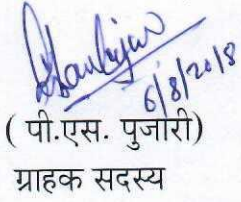 6/8/2018
( पी.एस. पुजारी)
ग्राहक सदस्य